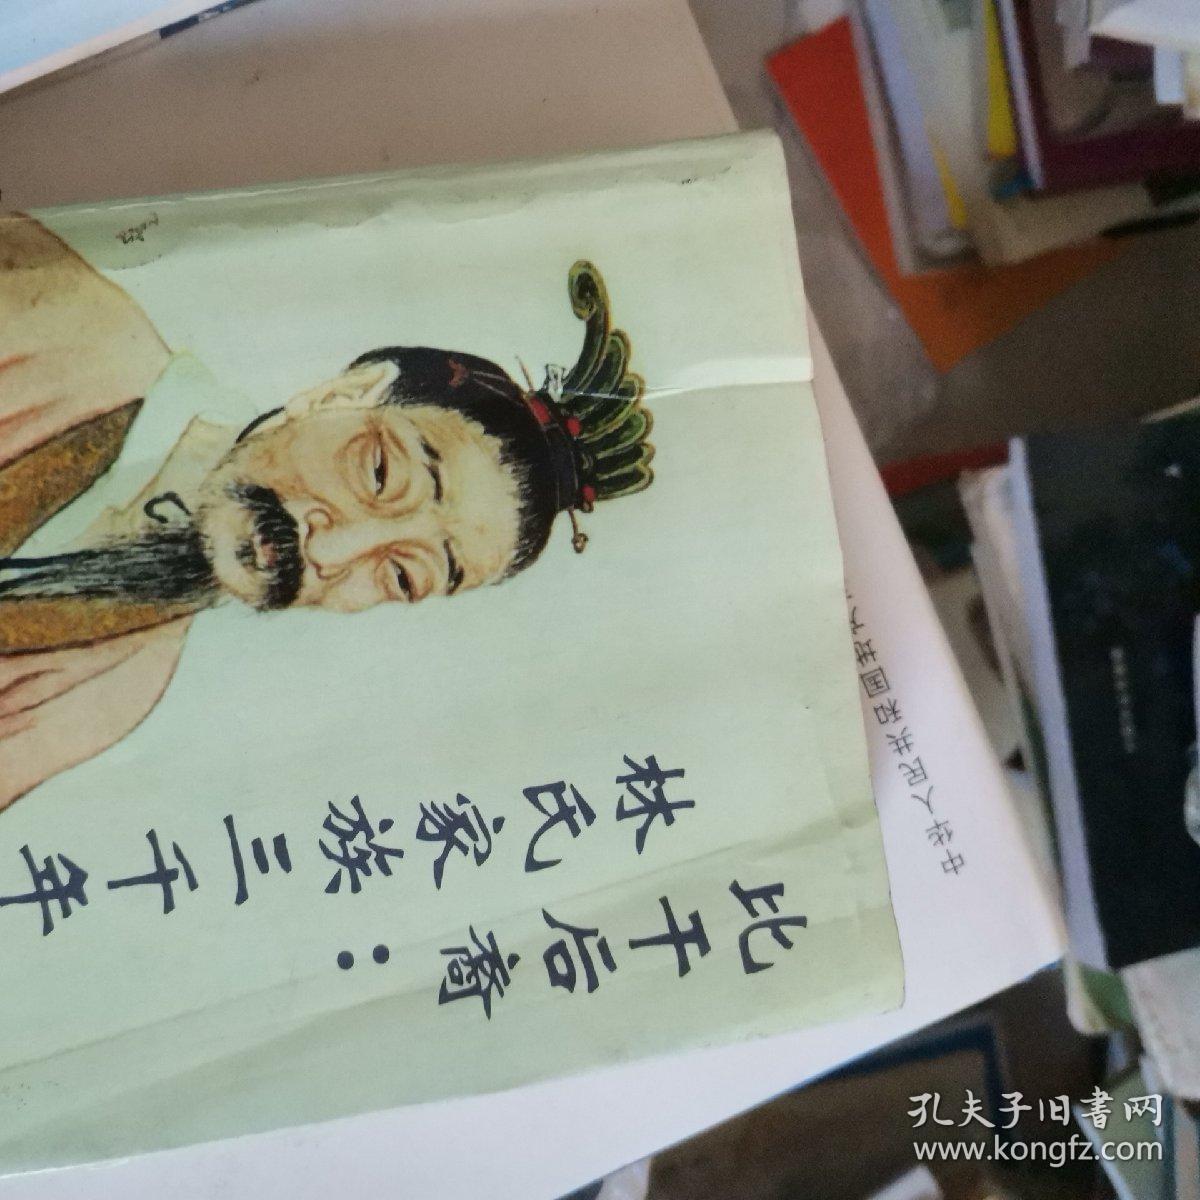 比干后裔：
林氏家族三千年
中华人民共和国
孔夫子旧書网
www.kongfz.com